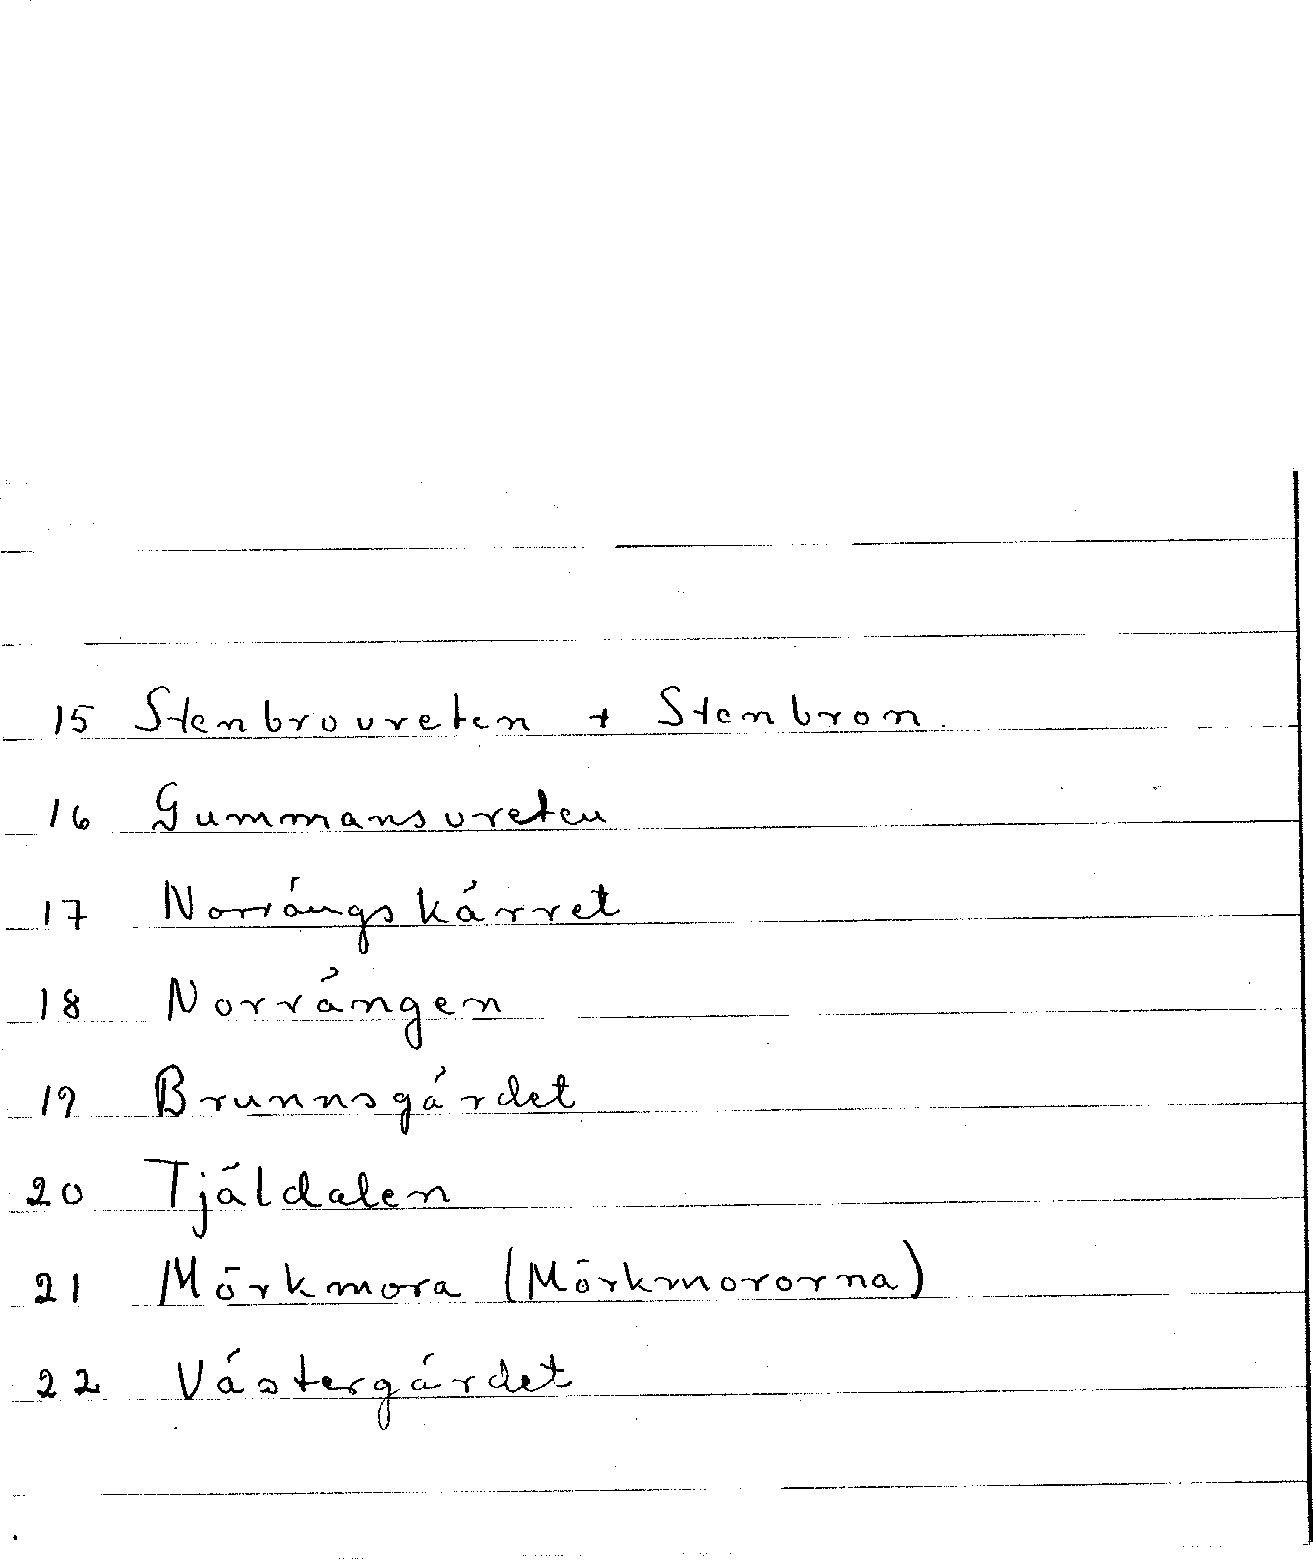 15 Stenbrovreten + Stenbron.
16 Gummansvreten
17 Norrängskärret
18 Norrängen
19 Brunnsgärdet
20 Tjäldalen
21 Mörkmora (Mörkmororna)
22 Västergärdet